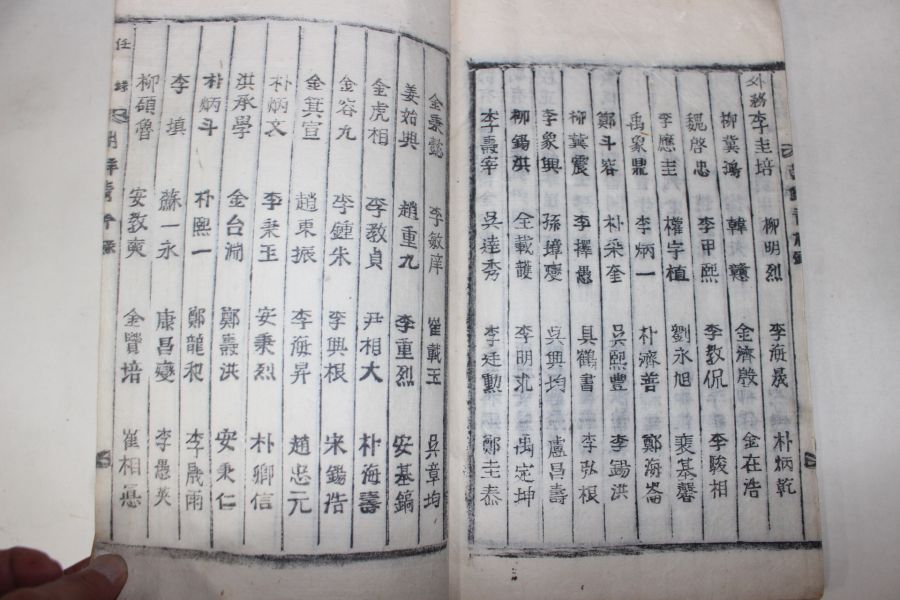 外務李圭培 柳明烈 李海晟 朴炳乾
柳冀鴻 韓 金濟殷 金在浩
魏啓忠 李甲熙 李教侃 李駿相
李應圭 權字植 劉永旭 裵基馨
禹象鼎 李炳一 朴濟善 鄭海崙
鄭斗容 朴來奎 吳熙豐 李錫洪
柳冀震 李擇愚 具鶴書 李弘根
李象興 孫璋燮 吳興均 盧昌壽
柳錫洪 全載頀 李明 禹定坤
李壽宰 吳達秀 李廷勳 鄭圭泰
金秉懿 李敏庠 崔載玉 吳章均
姜始興 趙重九 李重烈 安基鎬
金虎相 李教貞 尹相大 朴海壽
金容九 李鍾朱 李興根 宋錫浩
金箕宣 趙東振 李海昇 趙忠元
朴炳文 李秉玉 安秉烈 朴卿信
洪承學 金台淵 鄭壽洪 安秉仁
朴炳斗 朴熙一 鄭龍 李晟雨
李塡 蘇一永 康昌燮 李愚英
柳碩魯 安教奭 金賢培 崔相
任